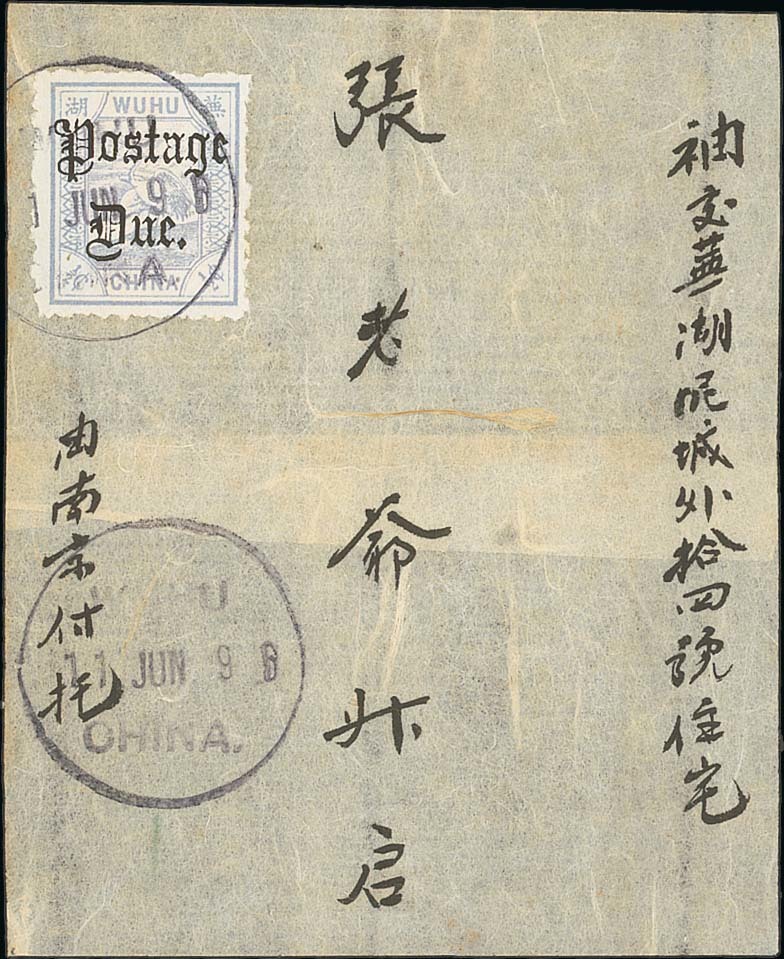 袖交蕪湖坭城外拾四號住宅
張老爺升启
由南京付托
湖 WUHU 蕪
Postage
Due.
CHINA
JUN 9 6
A
11 JUN 9 6
CHINA.